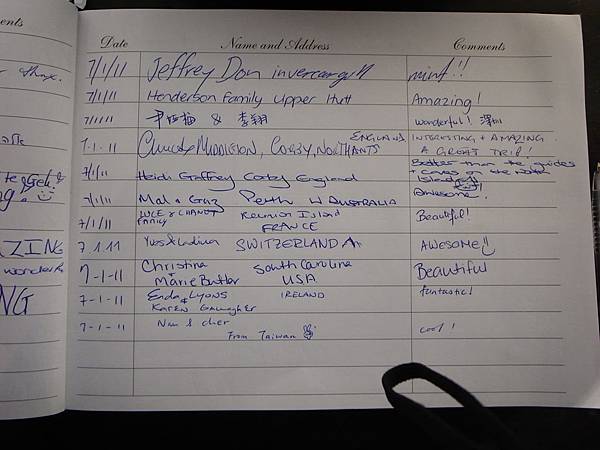 ents
Date Name and Address Comments
7/1/11 Jeffrey Don invercargill mint!!
7/1/11 Henderson Family Upper Hutt Amazing!
7/1/11 & 李翔 wonderful!
ENGLAND
7.1.11 MIDDLETON, CORBY, NORTHANTS INTERESTING + AMAZING.
A GREAT TRIP!
7/1/11 Heidi Gaffrey Corby England Better than the guides
+ caves on the North
Island
7/1/11 Mal & Gaz Perth W AUSTRALIA Awesome.
7/1/11 LUCE & CHANUT Reunion Island Beautiful!
FAMILY FRANCE
7.1.11 Yves & SWITZERLAND AWESOME
7-1-11 Christina South Carolina Beautiful
+ Marie Butler USA
7-1-11 Enda LYONS IRELAND fantastic!
& KAREN Gallagher
7-1-11 Nan & cher cool!
From Taiwan
thanx.
Gek.
AZING
wonder
NG